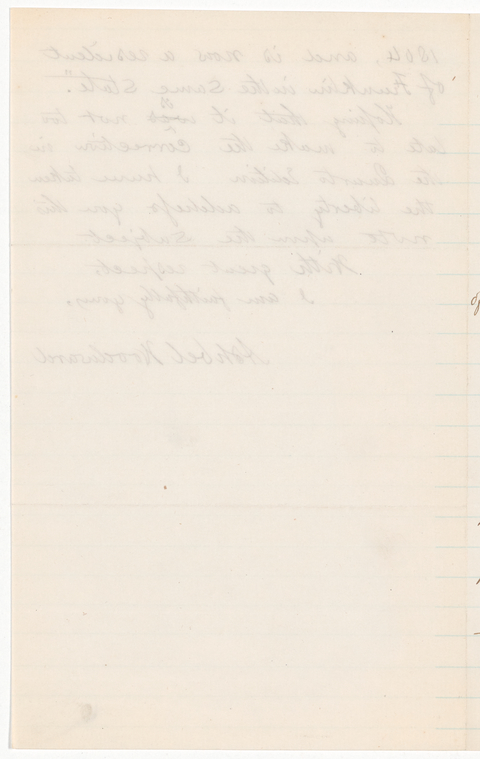 1804, and is now a resident
of Franklin in the same State."
Hoping that it is not too
late to make the correction in
the Quarto Edition I have taken
the liberty to address you this
note upon the subject
With great respect,
I am faithfully yours,
Ashbel Woodward